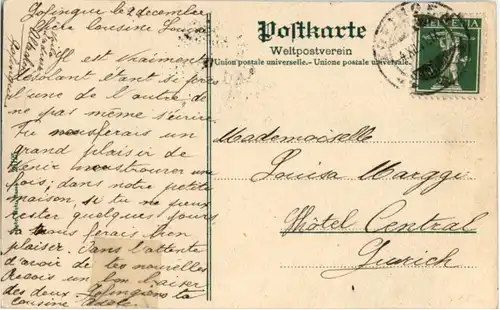 Zofingue le 2 décembre
Chère cousine Louisa
Il est vraiment
désolant étant si près
l'une de l'autre de
ne pas même s'écrire
Tu nous ferais un
grand plaisir de
venir nous trouver une
fois; dans notre petite
maison, si tu ne peux
rester quelques jours
tu nous ferais bien
plaisir. Dans l'attente
d'avoir de tes nouvelles
Reçois un bon baiser
des deux Zofingiens ta
cousine Adèle
Postkarte
Weltpostverein
Union postale universelle. - Unione postale universale.
HELVETIA
Mademoiselle
Louisa Maggi
Hôtel Central
Zurich